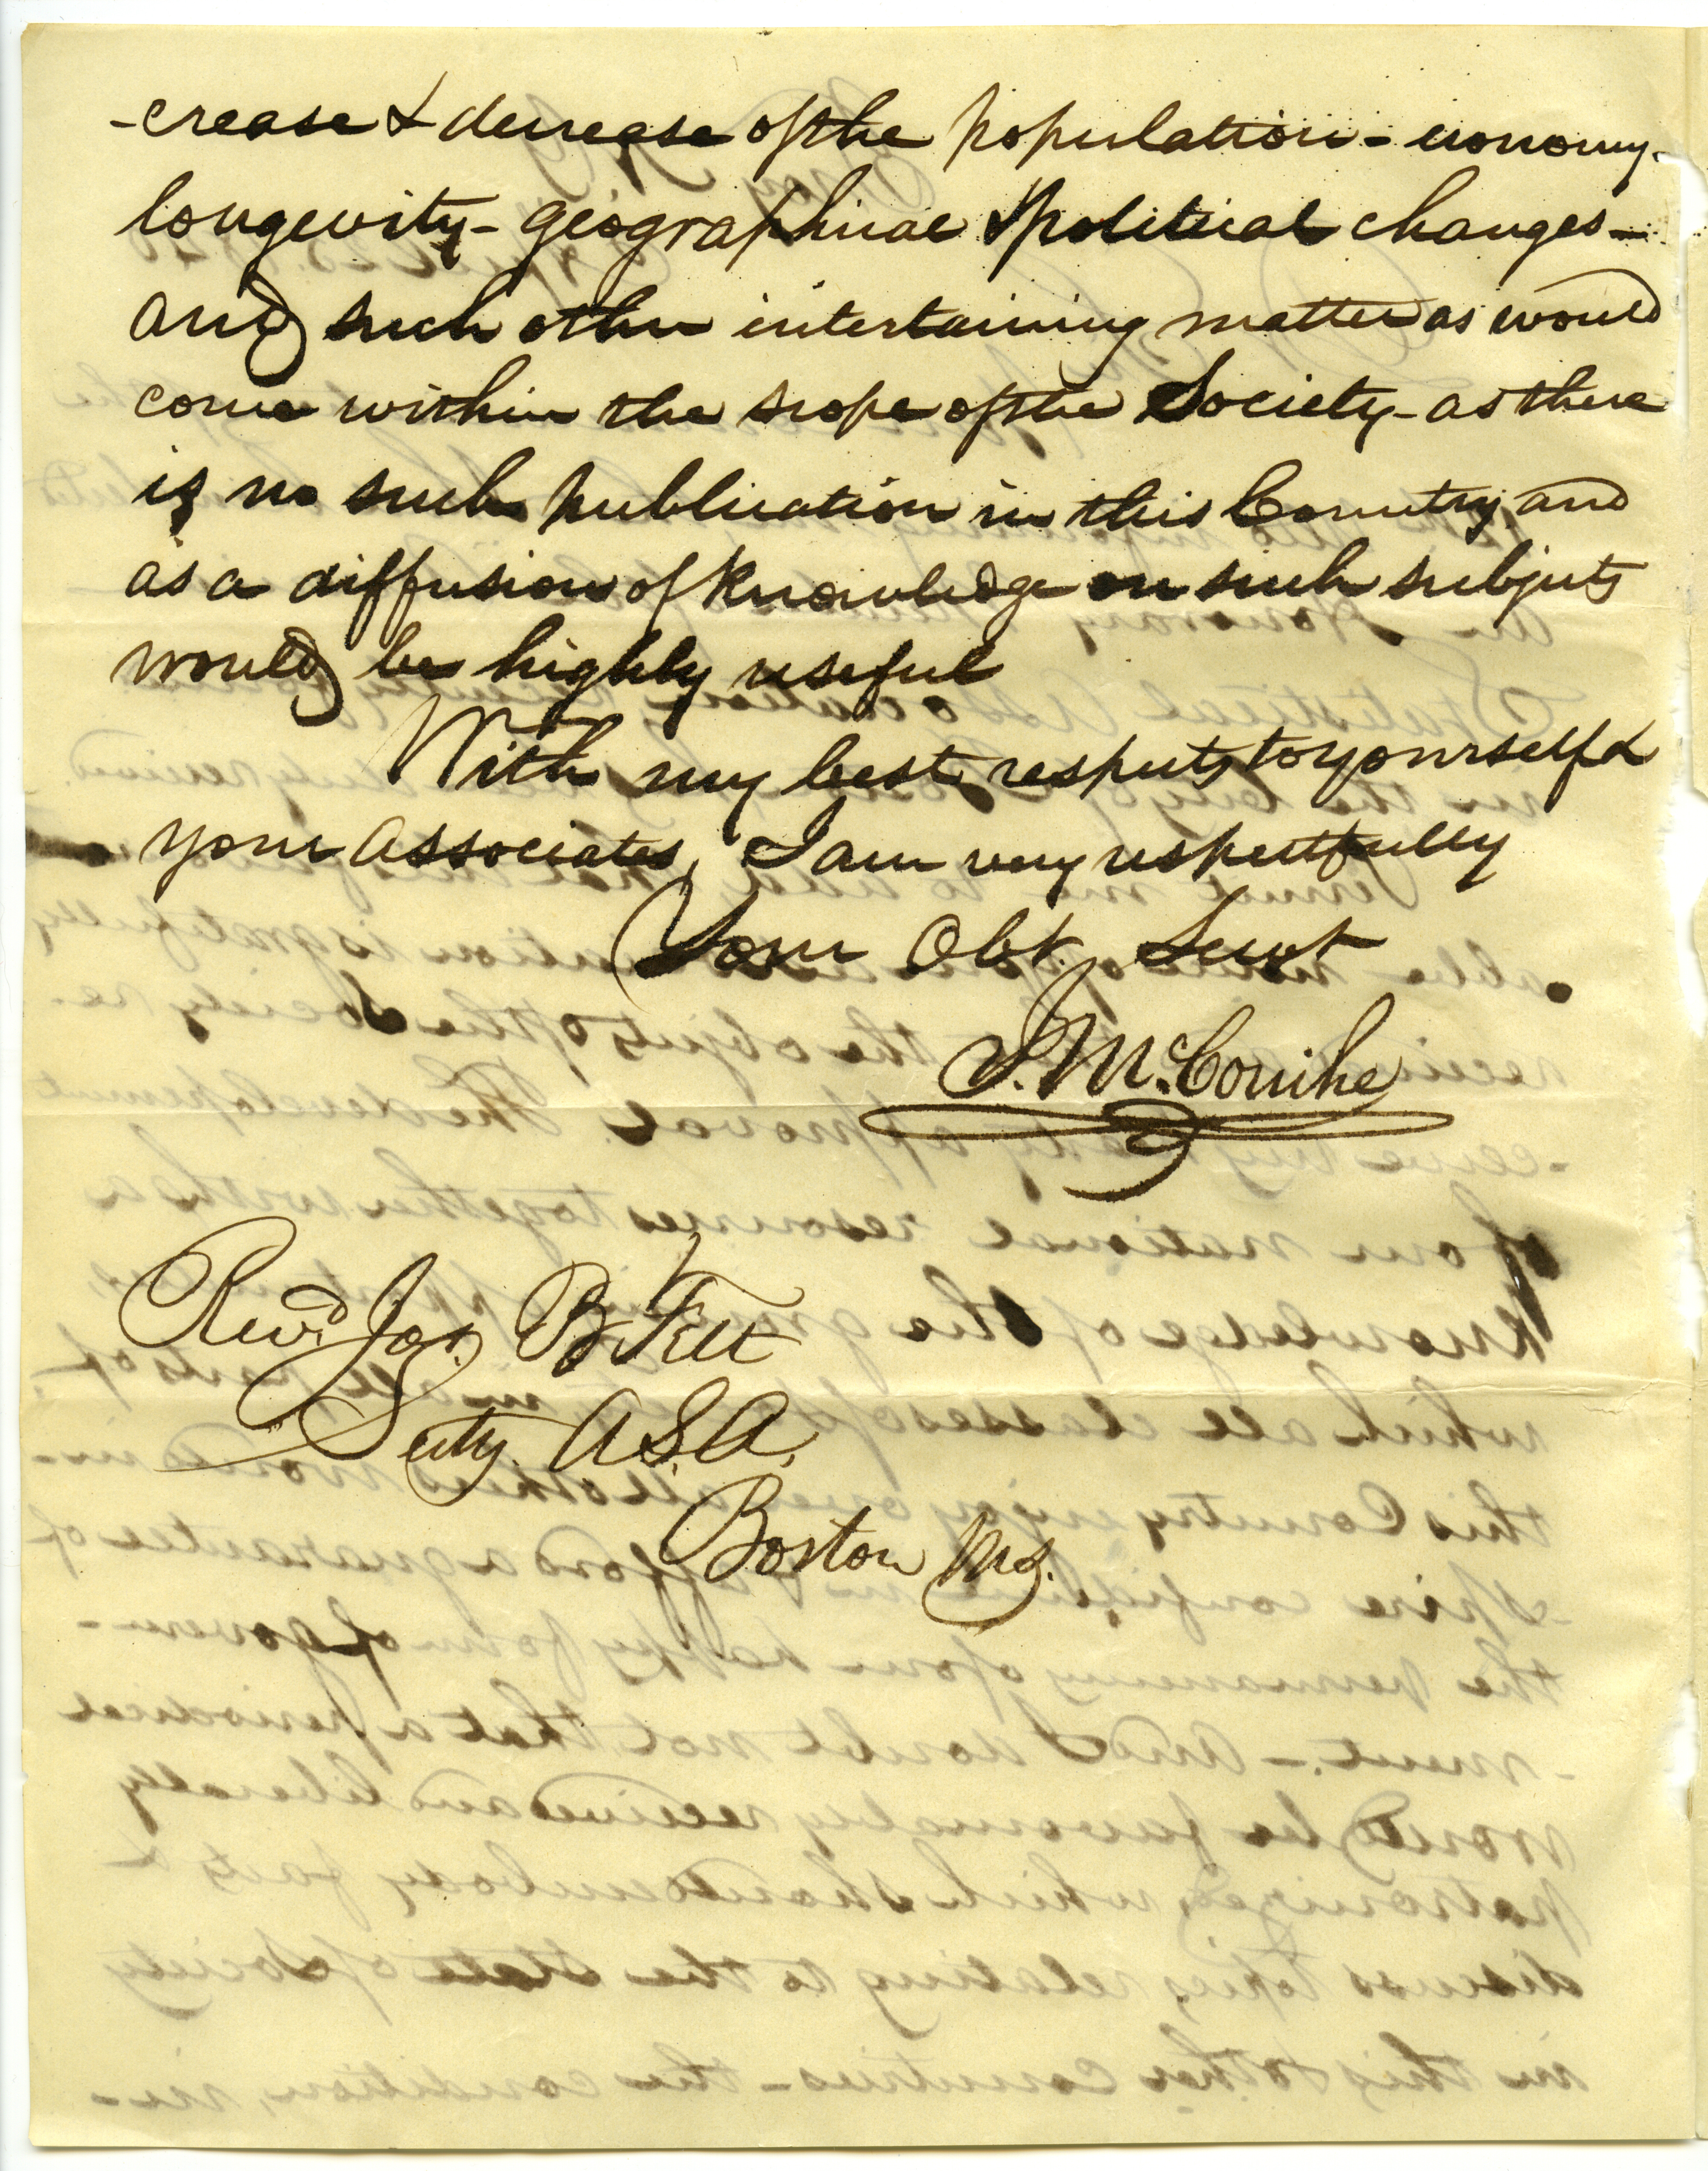 -crease & decrease of the population - economy -
longevity - geographical & political changes -
and such other intertaining matter as would
come within the scope of the Society - as there
is no such publication in this Country and
as a diffusion of knowledge on such subjects
would be highly useful
With my best respects to yourself &
your associates, I am very respectfully
Your Obt. Servt
I. McConihe
Revd. Jos. B Felt
Secty. A.S.A.
Boston Ms.